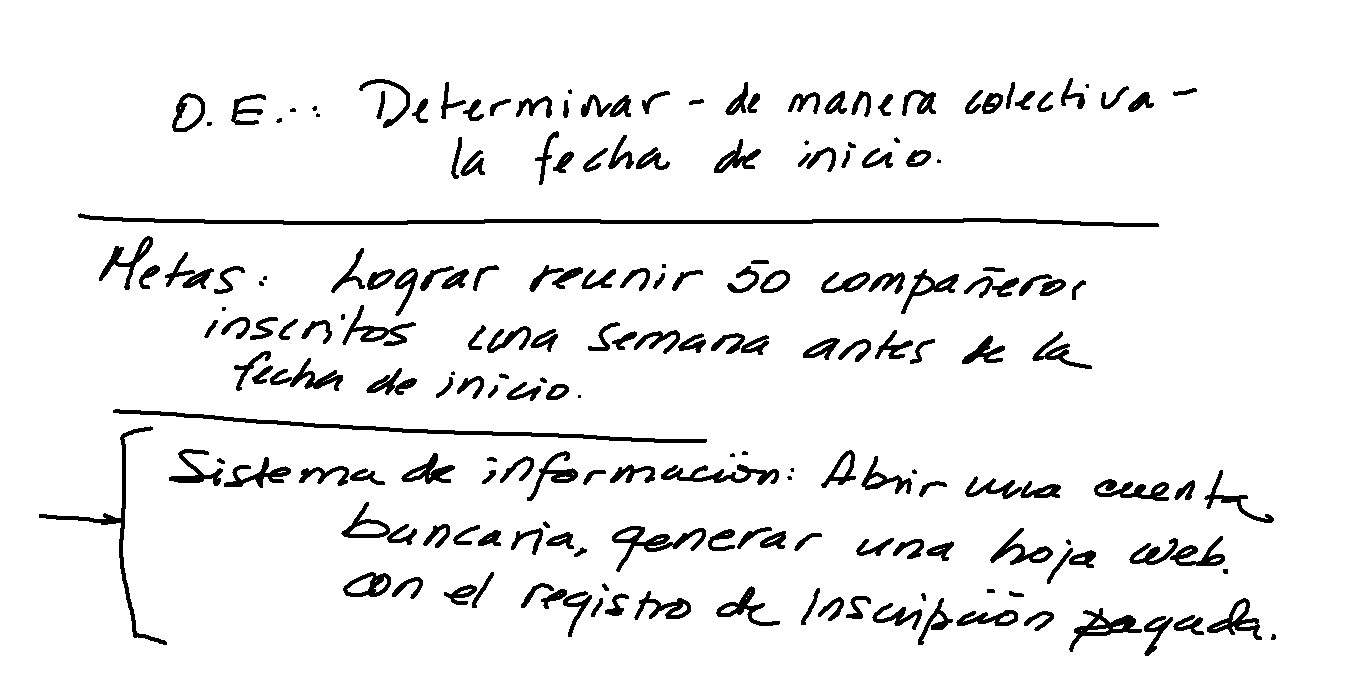 O.E.: Determinar - de manera colectiva -
la fecha de inicio.
Metas: Lograr reunir 50 compañeros
inscritos una semana antes de la
fecha de inicio.
Sistema de información: Abrir una cuenta
bancaria, generar una hoja web.
con el registro de Inscripción pagada.